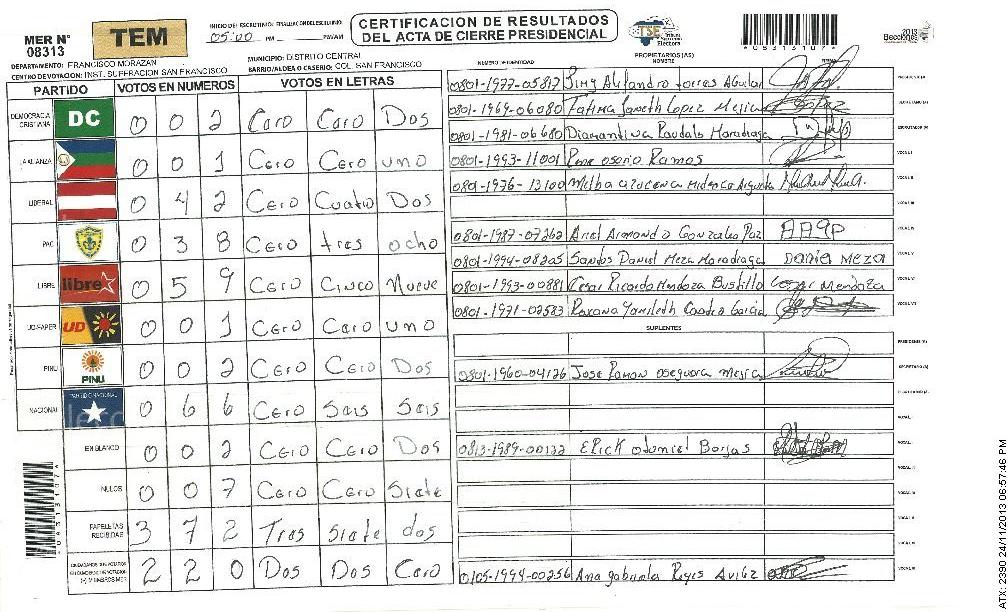 MER N° 08313
TEM
INICIO DEL ESCRUTINIO: FINALIZACION DEL ESCRUTINIO
05:00 PM PM/AM
CERTIFICACION DE RESULTADOS
DEL ACTA DE CIERRE PRESIDENCIAL
TSE
*083131071*
2013
DEPARTAMENTO: FRANCISCO MORAZAN
MUNICIPIO: DISTRITO CENTRAL
CENTRO DE VOTACION: INST. SUPERACION SAN FRANCISCO
BARRIO/ALDEA O CASERIO: COL. SAN FRANCISCO
PARTIDO VOTOS EN NUMEROS VOTOS EN LETRAS
DEMOCRACIA CRISTIANA DC 0 0 2 Cero Cero Dos
LA ALIANZA 0 0 1 Cero Cero uno
LIBERAL 0 4 2 Cero Cuatro Dos
PAC 0 3 8 Cero tres ocho
LIBRE libre 0 5 9 Cero Cinco Nueve
UD-FAPER UD 0 0 1 Cero Cero uno
PINU PINU 0 0 2 Cero Cero Dos
NACIONAL PARTIDO NACIONAL 0 6 6 Cero Seis Seis
EN BLANCO 0 0 2 Cero Cero Dos
NULOS 0 0 7 Cero Cero Siete
PAPELETAS RECIBIDAS 3 7 2 Tres Siete dos
2 2 0 Dos Dos Cero
*083131071*
PROPIETARIOS (AS)
NUMERO DE IDENTIDAD NOMBRE FIRMA
0801-1977-05817 Jimy Alejandro torres Aguilar
0801-1969-06080 Fatima Janeth Lopez Mejia
0801-1981-06680 Diamantina Raudales Maradiaga
0801-1993-11001 Rene osorio Ramos
0801-1976-13100 Melba azucena
0801-1987-07262 Ariel Armondo Gonzales Paz AAGP
0801-1994-08205 Santos Daniel Meza Maradiaga Daniel Meza
0801-1993-00881 Cesar Ricardo Mendoza Bustillo Cesar Mendoza
0801-1971-02583 Roxana Yamileth Castro Garcia
SUPLENTES
0801-1960-04126 Jose Ramon oseguera mejia
0813-1989-00132 Erick otoniel Borjas
0105-1994-00256 Ana gabriela Reyes Avilez
ATX: 2390 24/11/2013 06:57:46 PM